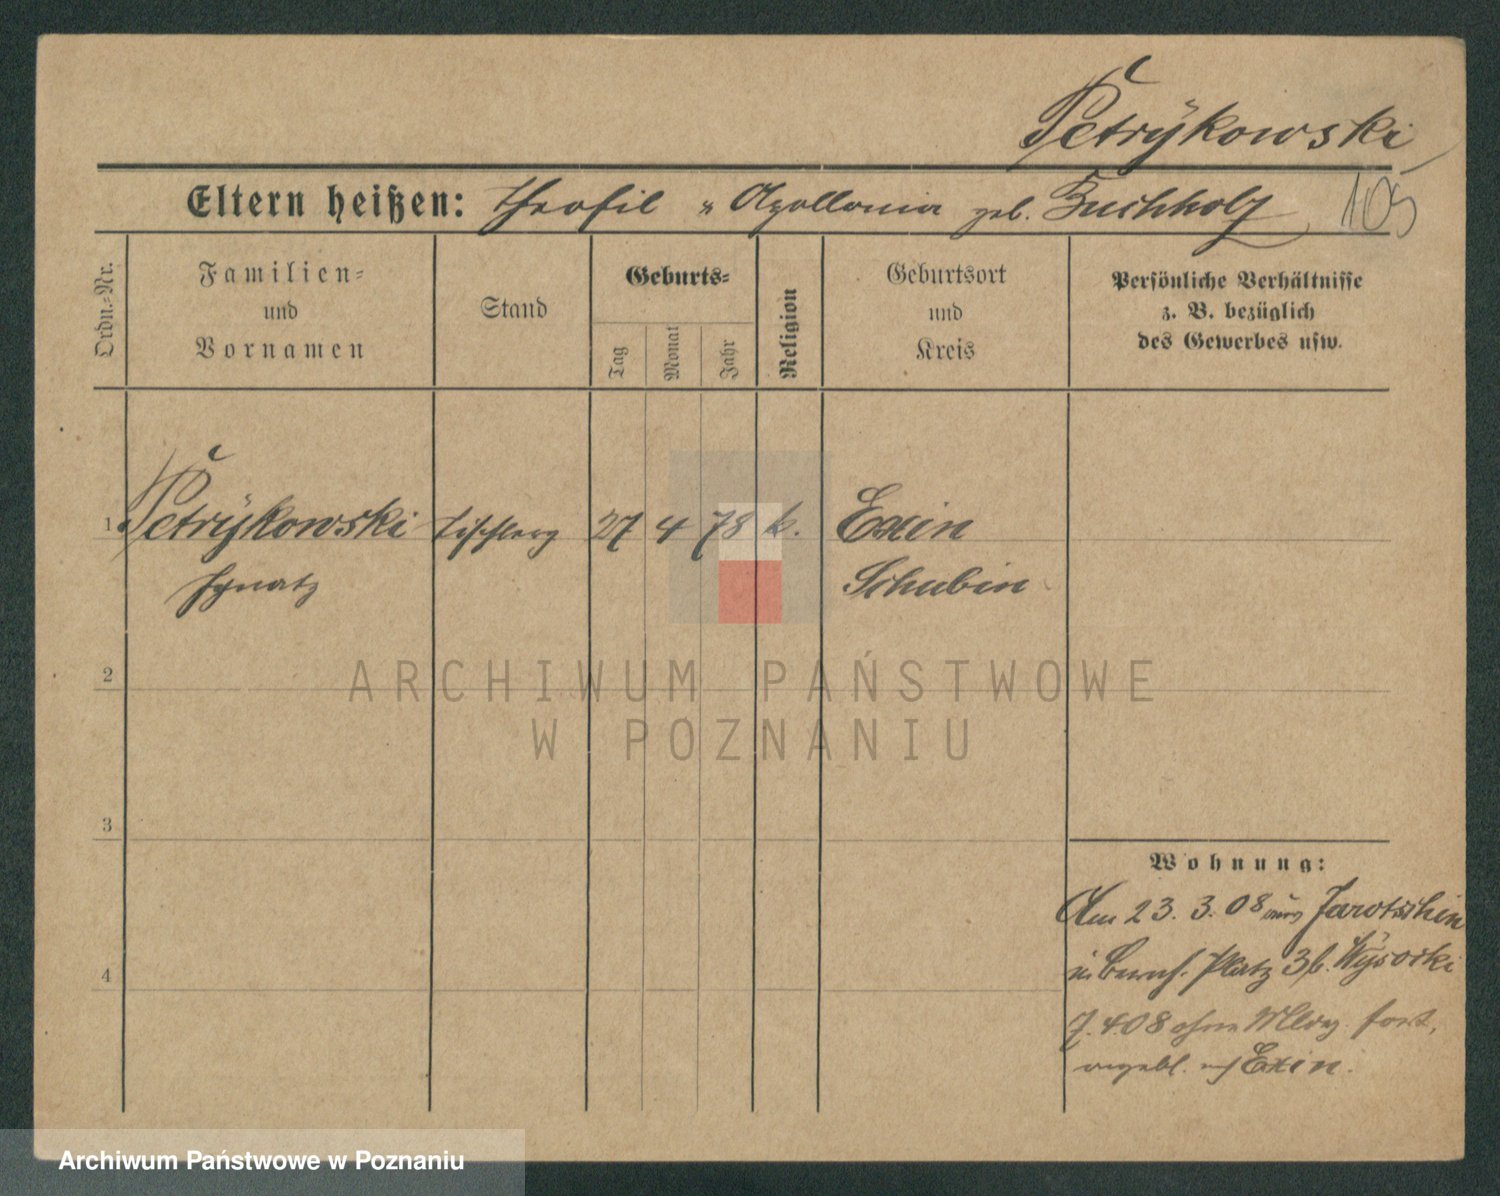 Petrÿkowski
Eltern heißen: Theofil u Apollonia geb. Buchholz
105
Ordn.-Nr.
Familien-
und
Vornamen
Stand
Geburts-
Tag
Monat
Jahr
Religion
Geburtsort
und
Kreis
Persönliche Verhältnisse
z. B. bezüglich
des Gewerbes usw.
1. Petrÿkowski Tischlerg 27 4 78 k. Exin
Ignatz Schubin
2
3
4
ARCHIWUM PAŃSTWOWE
W POZNANIU
Wohnung:
Am 23. 3. 08 aus Jarotschin
in Platz 3 b. Wÿsocki
7. 4. 08 ohne Meldg. fort,
angebl. n/ Exin.
Archiwum Państwowe w Poznaniu